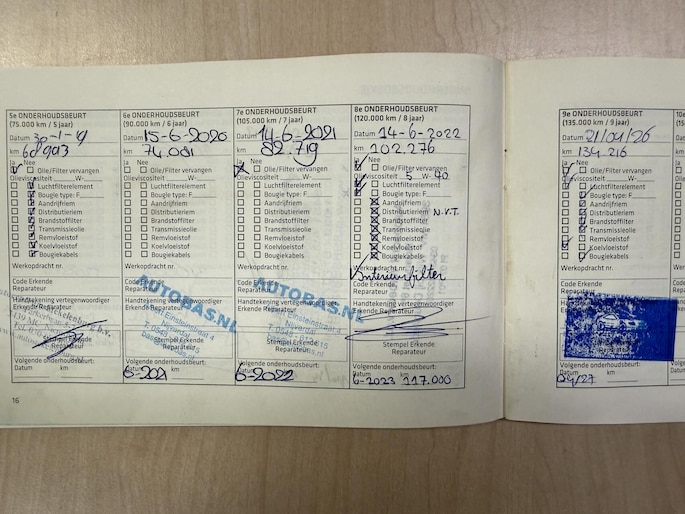 5e ONDERHOUDSBEURT
(75.000 km / 5 jaar)
Datum 30-1-19
km
Ja Nee
Olie/Filter vervangen
Olieviscositeit W-
Luchtfilterelement
Bougie type: F
Aandrijfriem
Distributieriem
Brandstoffilter
Transmissieolie
Remvloeistof
Koelvloeistof
Bougiekabels
Werkopdracht nr.
Code Erkende
Reparateur
Handtekening vertegenwoordiger
Erkende Reparateur
Stempel Erkende
Reparateur
Volgende onderhoudsbeurt:
Datum km
16
6e ONDERHOUDSBEURT
(90.000 km / 6 jaar)
Datum 15-6-2020
km 74.081
Ja Nee
Olie/Filter vervangen
Olieviscositeit W-
Luchtfilterelement
Bougie type: F
Aandrijfriem
Distributieriem
Brandstoffilter
Transmissieolie
Remvloeistof
Koelvloeistof
Bougiekabels
Werkopdracht nr.
Code Erkende
Reparateur
AUTOBAS.NL
Handtekening vertegenwoordiger
Erkende Reparateur
Einsteinstraat 4
Nijverdal
Stempel Erkende
Reparateur
Volgende onderhoudsbeurt:
Datum km
6-2021
7e ONDERHOUDSBEURT
(105.000 km / 7 jaar)
Datum 14-6-2021
km 82.719
Ja Nee
Olie/Filter vervangen
Olieviscositeit W-
Luchtfilterelement
Bougie type: F
Aandrijfriem
Distributieriem
Brandstoffilter
Transmissieolie
Remvloeistof
Koelvloeistof
Bougiekabels
Werkopdracht nr.
Code Erkende
Reparateur
AUTOBAS.NL
Handtekening vertegenwoordiger
Erkende Reparateur
Einsteinstraat 4
Nijverdal
Stempel Erkende
Reparateur
Volgende onderhoudsbeurt:
Datum km
6-2022
8e ONDERHOUDSBEURT
(120.000 km / 8 jaar)
Datum 14-6-2022
km 102.276
Ja Nee
Olie/Filter vervangen
Olieviscositeit 5 W-40
Luchtfilterelement
Bougie type: F
Aandrijfriem
Distributieriem N.V.T.
Brandstoffilter
Transmissieolie
Remvloeistof
Koelvloeistof
Bougiekabels
Werkopdracht nr.
Interieurfilter
Code Erkende
Reparateur
Handtekening vertegenwoordiger
Erkende Reparateur
Stempel Erkende
Reparateur
Volgende onderhoudsbeurt:
Datum km
6-2023 117.000
9e ONDERHOUDSBEURT
(135.000 km / 9 jaar)
Datum 21/04/26
km 134.216
Ja Nee
Olie/Filter vervangen
Olieviscositeit W-
Luchtfilterelement
Bougie type: F
Aandrijfriem
Distributieriem
Brandstoffilter
Transmissieolie
Remvloeistof
Koelvloeistof
Bougiekabels
Werkopdracht nr.
Code Erkende
Reparateur
Handtekening vertegenwoordiger
Reparateur
Volgende onderhoudsbeurt:
Datum km
04/27